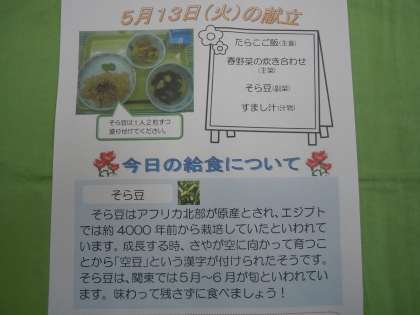 5月13日(火)の献立
たらこご飯(主食)
春野菜の炊き合わせ
(主菜)
そら豆(副菜)
すまし汁(汁物)
そら豆は1人2粒ずつ
盛り付けてください。
今日の給食について
そら豆
そら豆はアフリカ北部が原産とされ、エジプト
では約4000年前から栽培していたといわれ
ています。成長する時、さやが空に向かって育つこ
とから「空豆」という漢字が付けられたそうです。
そら豆は、関東では5月~6月が旬といわれてい
ます。味わって残さずに食べましょう!